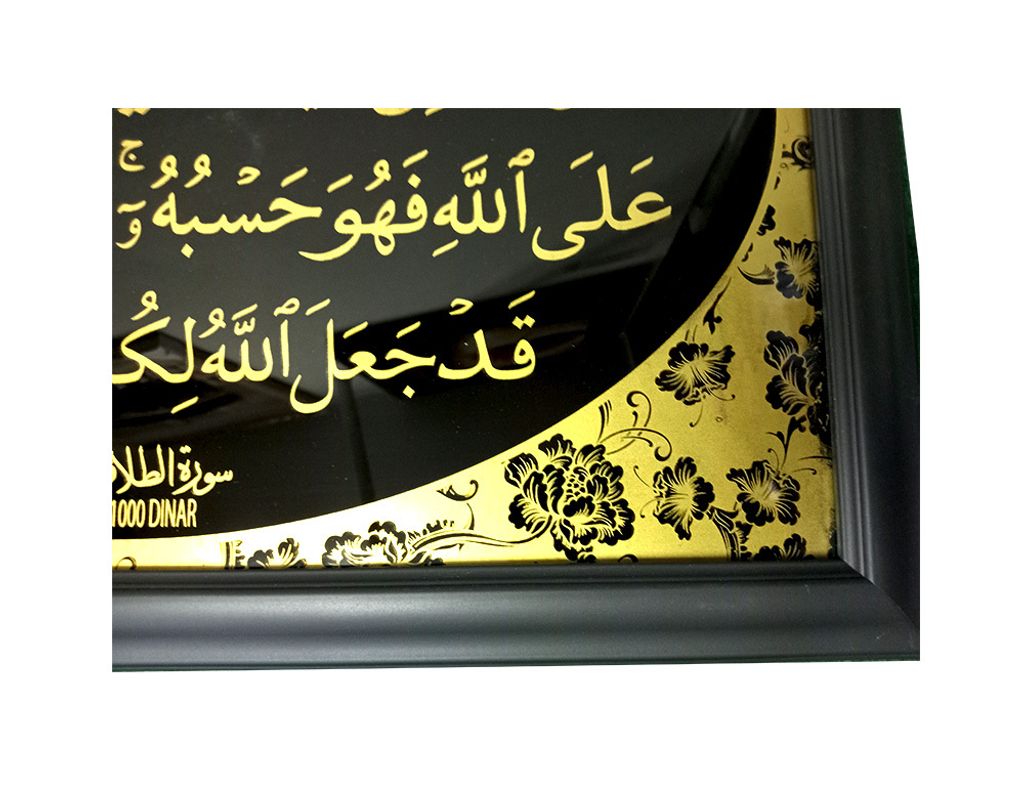 عَلَى ٱللَّهِ فَهُوَ حَسْبُهُۥٓ ۚ
قَدْ جَعَلَ ٱللَّهُ لِكُ
سورة الطلا
1000 DINAR